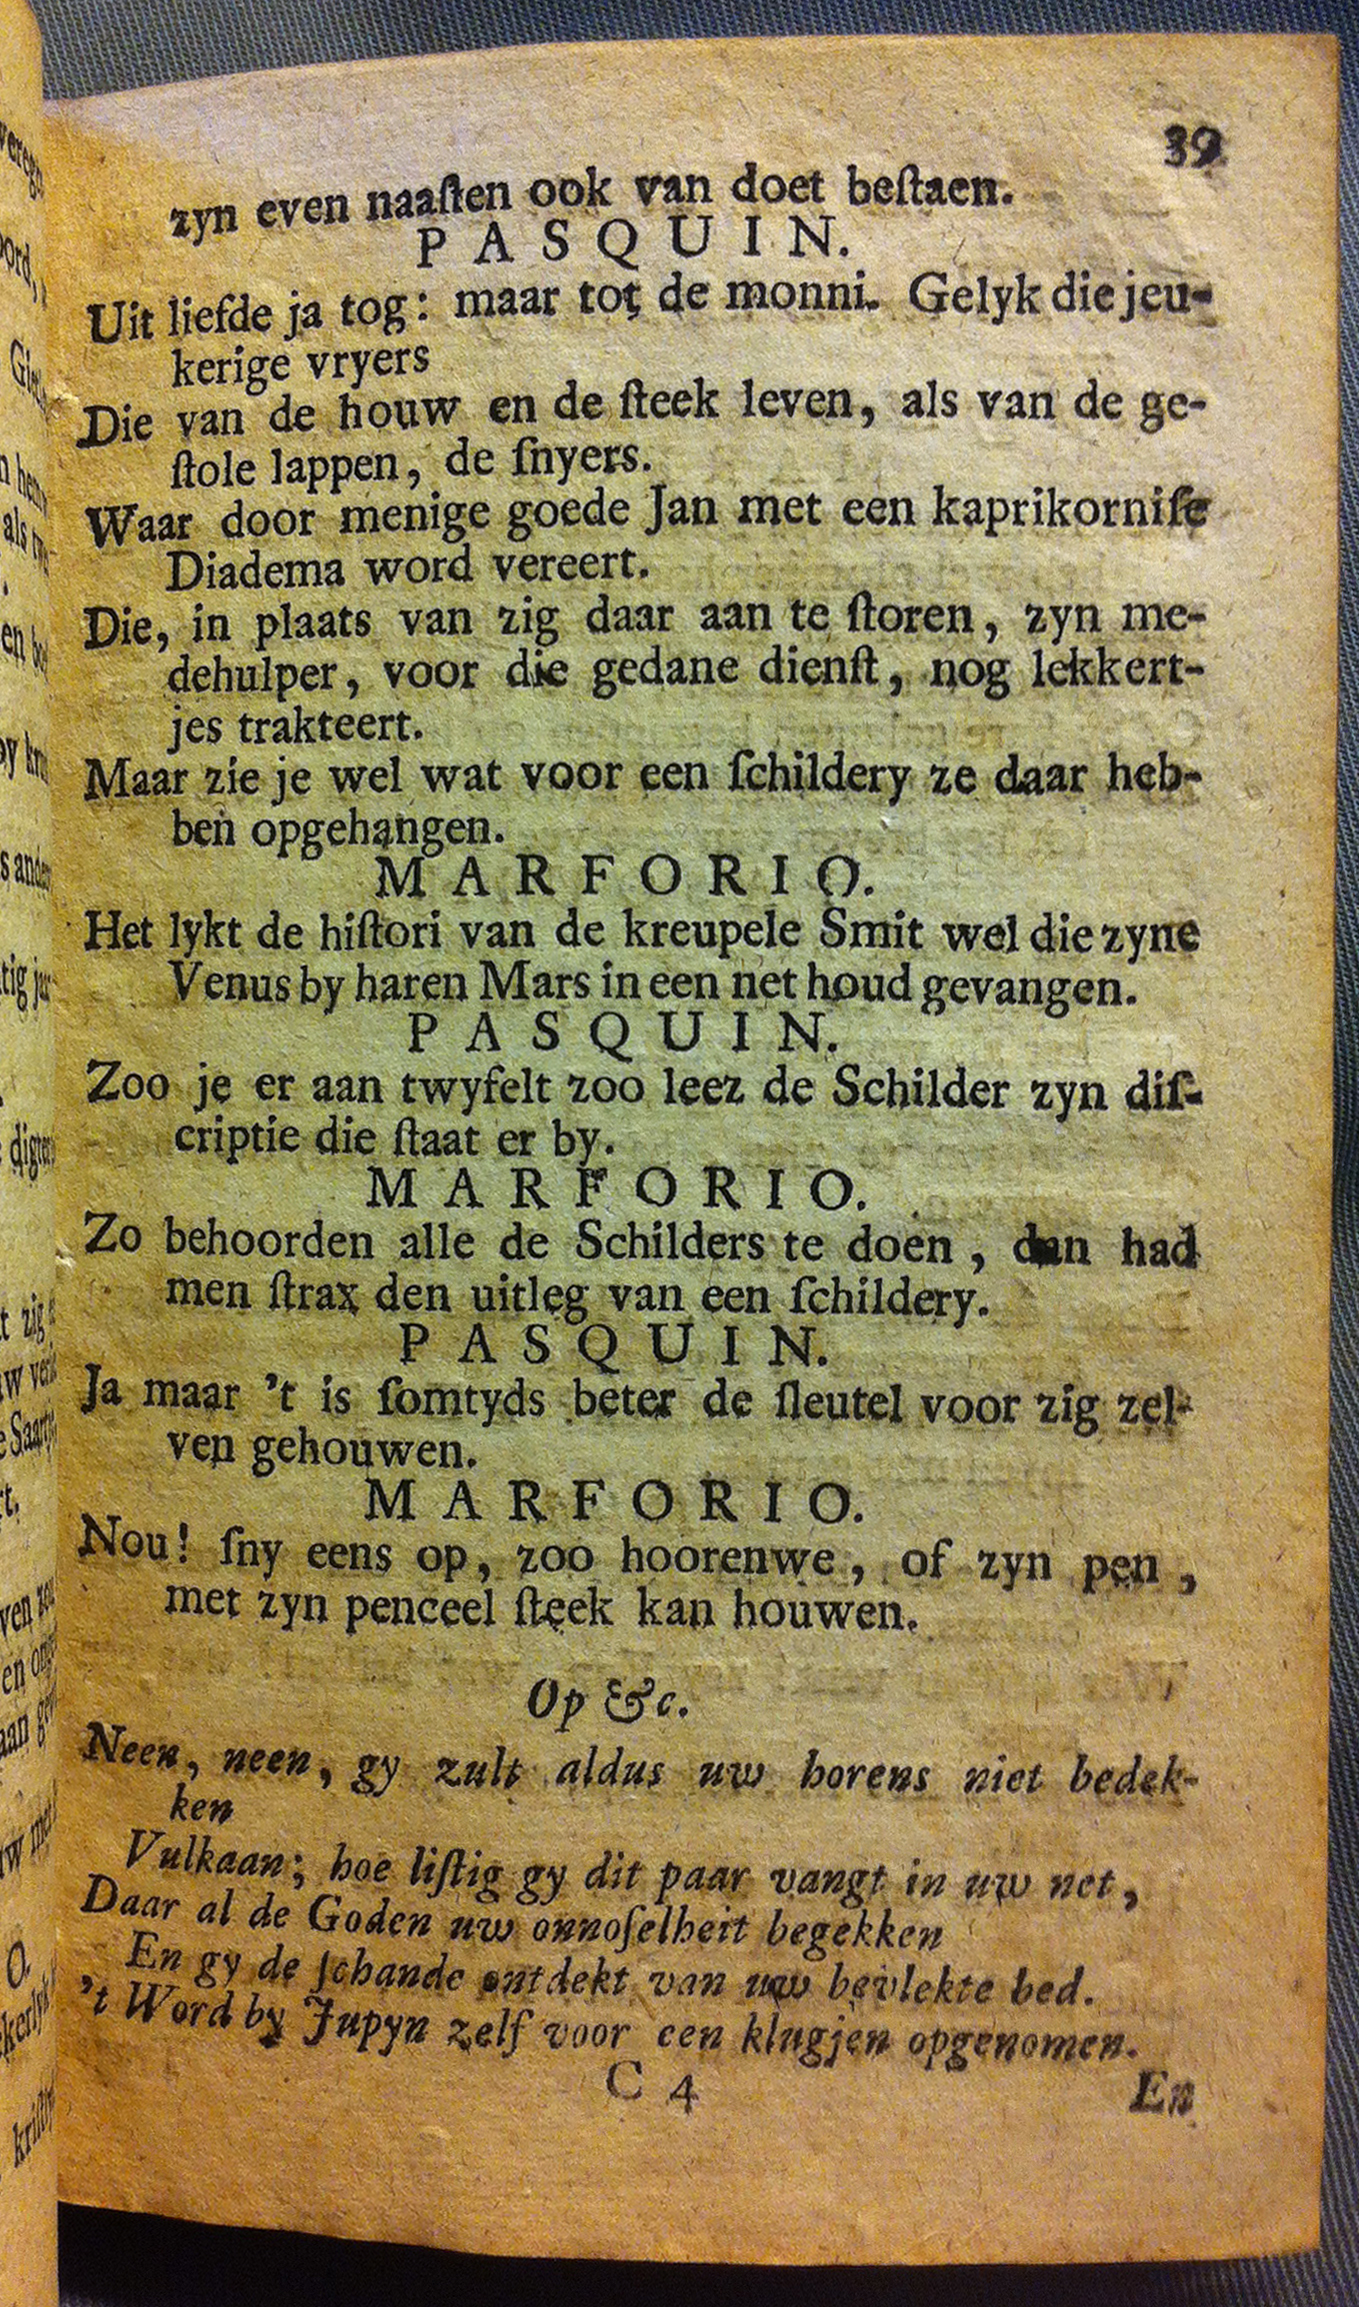 39
zyn even naaſten ook van doet beſtaen.
PASQUIN.
Uit liefde ja tog: maar tot de monni. Gelyk die jeu-
kerige vryers
Die van de houw en de ſteek leven, als van de ge-
ſtole lappen, de ſnyers.
Waar door menige goede Jan met een kaprikorniſe
Diadema word vereert.
Die, in plaats van zig daar aan te ſtoren, zyn me-
dehulper, voor die gedane dienſt, nog lekkert-
jes trakteert.
Maar zie je wel wat voor een ſchildery ze daar heb-
ben opgehangen.
MARFORIO.
Het lykt de hiſtori van de kreupele Smit wel die zyne
Venus by haren Mars in een net houd gevangen.
PASQUIN.
Zoo je er aan twyfelt zoo leez de Schilder zyn diſ-
criptie die ſtaat er by.
MARFORIO.
Zo behoorden alle de Schilders te doen, dan had
men ſtrax den uitleg van een ſchildery.
PASQUIN.
Ja maar 't is ſomtyds beter de ſleutel voor zig zel-
ven gehouwen.
MARFORIO.
Nou! ſny eens op, zoo hoorenwe, of zyn pen,
met zyn penceel ſteek kan houwen.
Op &c.
Neen, neen, gy zult aldus uw horens niet bedek-
ken
Vulkaan; hoe liſtig gy dit paar vangt in uw net,
Daar al de Goden uw onnoſelheit begekken
En gy de ſchande ontdekt van uw bevlekte bed.
't Word by Jupyn zelf voor een klugjen opgenomen.
C 4
En